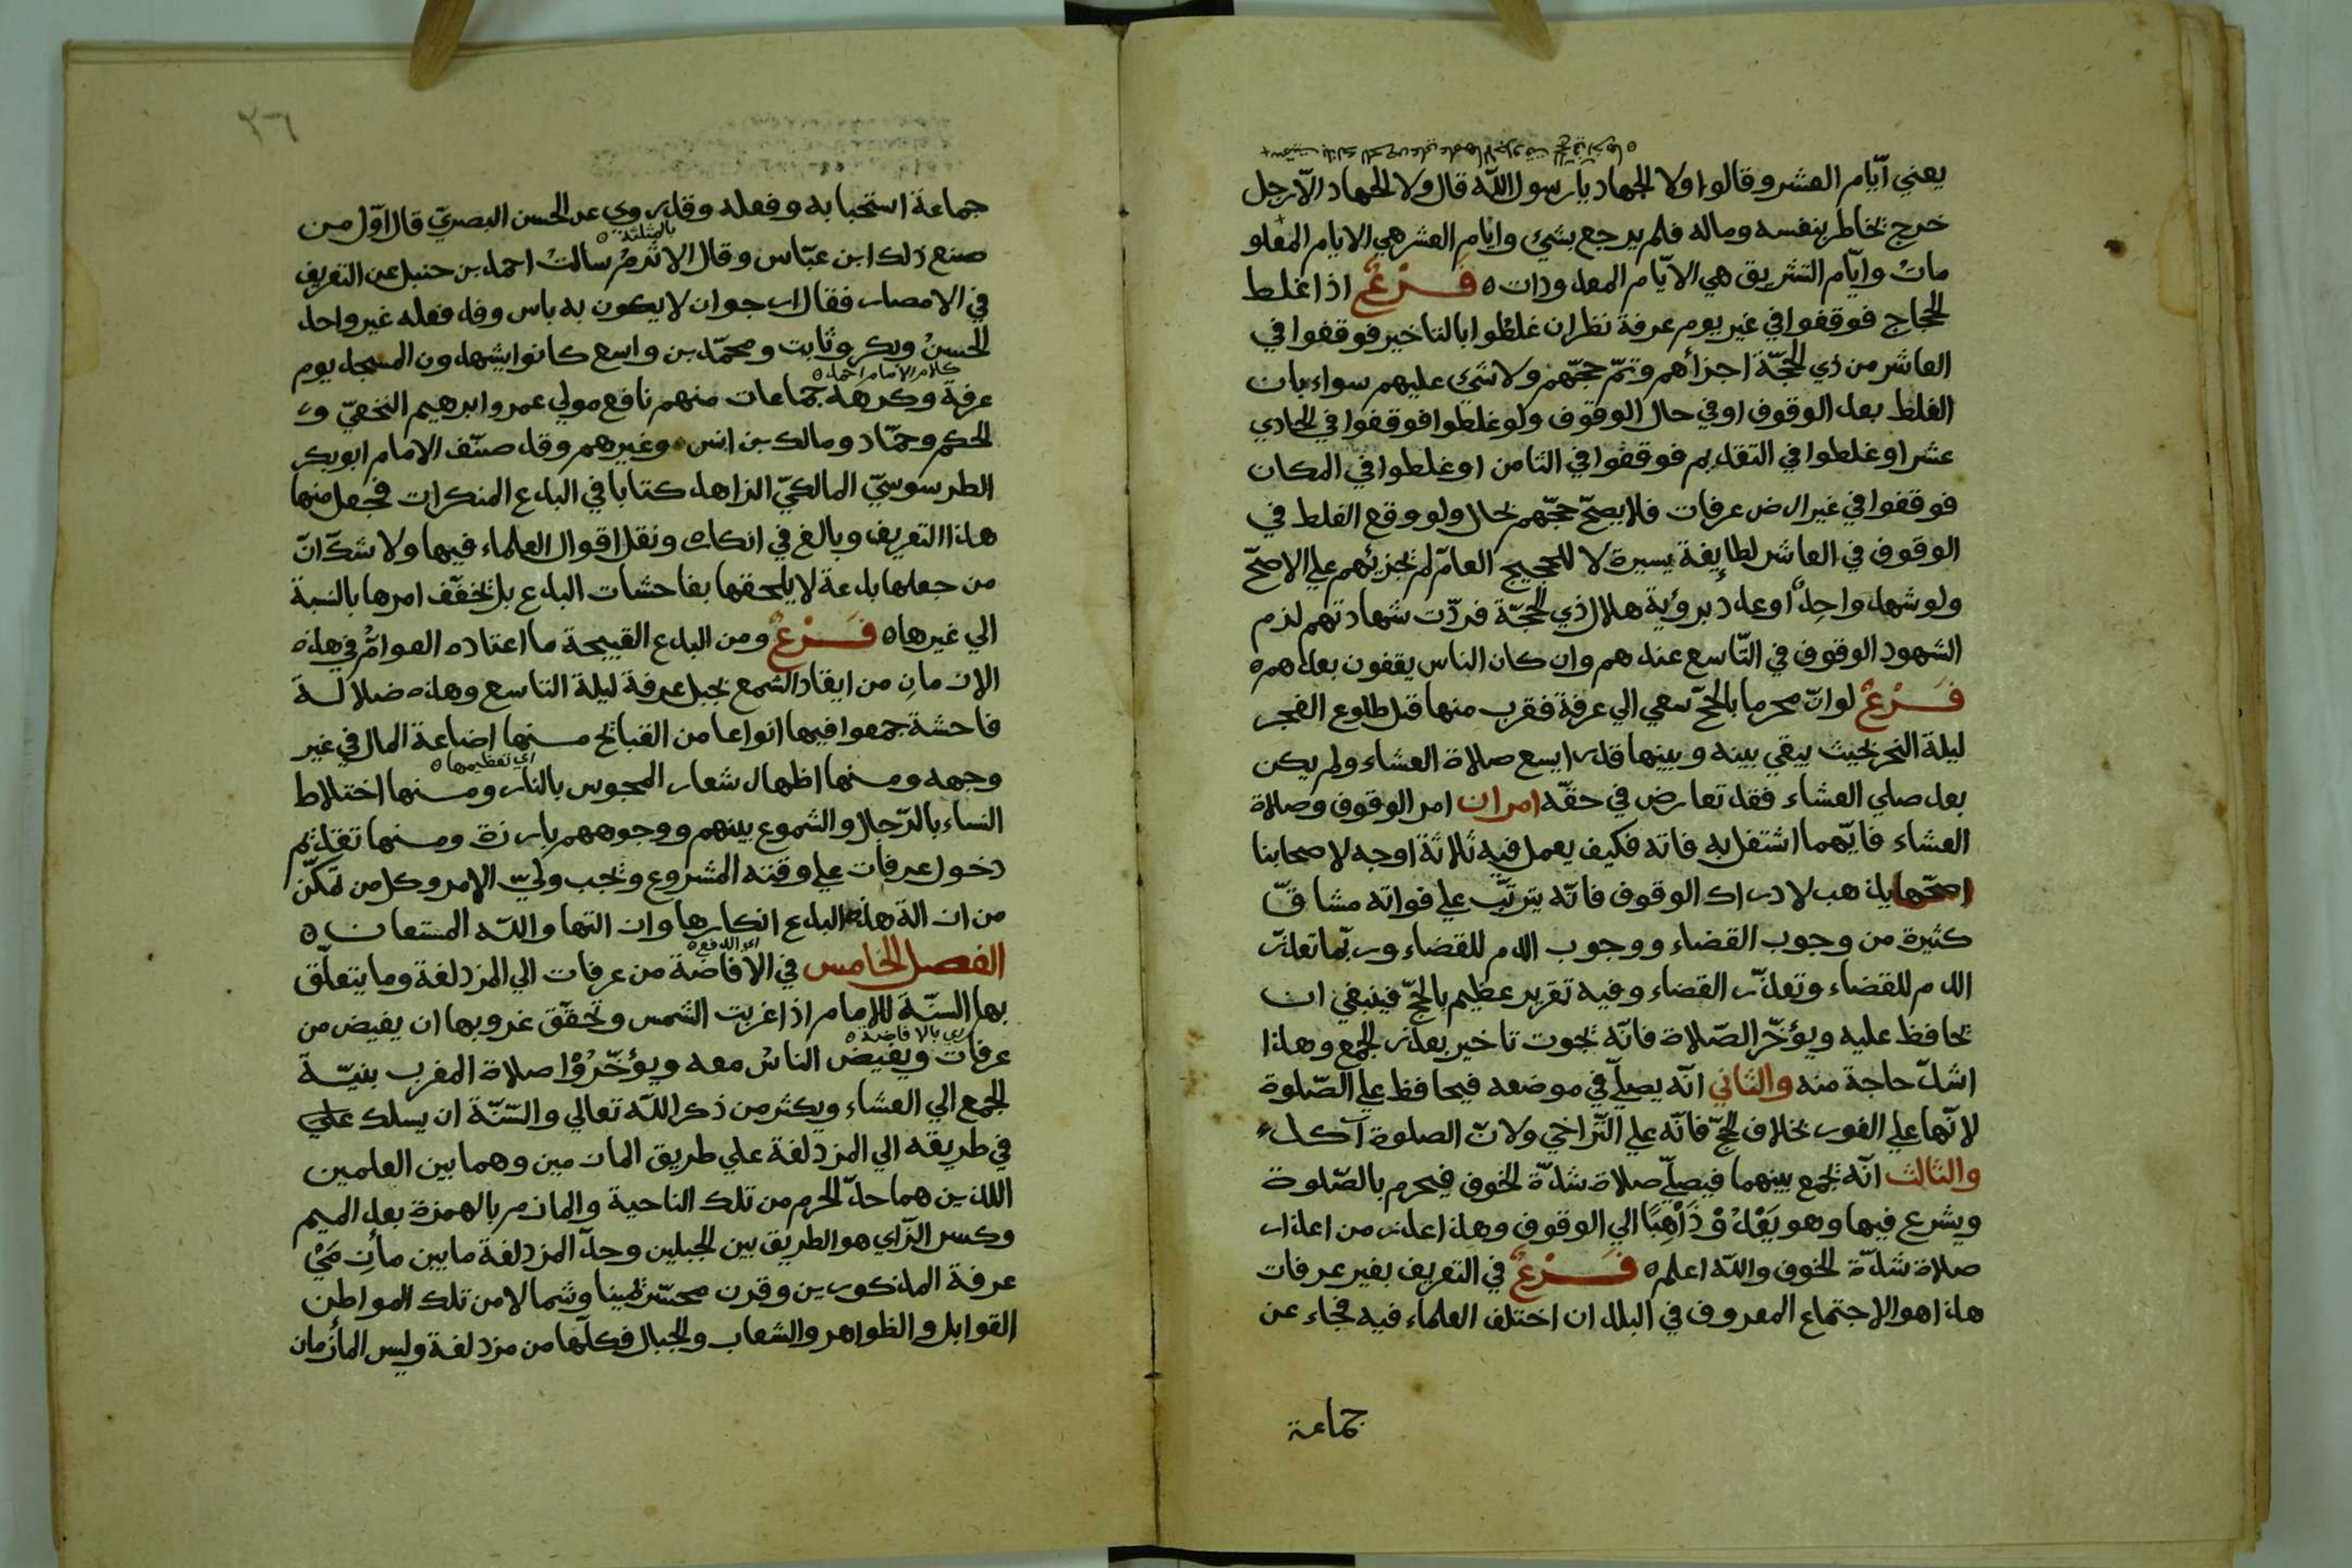 يعني أيّام العشر وقالوا ولا الجهاد يا رسول اللّه قال ولا الجهاد الّا رجل
خرج يخاطر بنفسه وماله فلم يرجع بشيء وايام العشر هي الايام المعلو
مات وايّام التشريق هي الايّام المعدودات ه فَرْعٌ اذا غلط
الحجاج فوقفوا في غير يوم عرفة نظر ان غلطوا بالتاخير فوقفوا في
العاشر من ذي الحجّة اجزأهم وتمّ حجّهم ولا شيء عليهم سواء بان
الغلط بعد الوقوف او في حال الوقوف ولو غلطوا فوقفوا في الحادي
عشر او غلطوا في التقديم فوقفوا في الثامن او غلطوا في المكان
فوقفوا في غير ارض عرفات فلا يصحّ حجّهم بحال ولو وقع الغلط في
الوقوف في العاشر لطايفة يسيرة لا للحجيج العامّ لم يجزئهم علي الاصحّ
ولو شهد واحدٌ او عدد برؤية هلال ذي الحجّة فردّت شهادتهم لزم
الشهود الوقوف في التّاسع عندهم وان كان الناس يقفون بعدهم ه
فَرْعٌ لو انّ محرما بالحجّ سعي الي عرفة فقرب منها قبل طلوع الفجر
ليلة النحر بحيث يبقي بينه وبينها قدر ايسع صلاة العشاء ولم يكن
بعد صلي العشاء فقد تعارض في حقّه امران امر الوقوف وصلاة
العشاء فايّهما اشتغل به فاته فكيف يعمل فيه ثلاثة اوجه لاصحابنا
اصحّها يذهب لادراك الوقوف فانّه يترتّب علي فواته مشاقّ
كثيرة من وجوب القضاء ووجوب الدم للقضاء وربّما تعذّر
الدم للقضاء وتعذّر القضاء وفيه تغرير عظيم بالحجّ فينبغي ان
يحافظ عليه ويؤخّر الصّلاة فانّه يجوز تاخير بعذر الجمع وهذا
اشدّ حاجة منه والثاني انّه يصلّي في موضعه فيحافظ علي الصّلوة
لانّها علي الفور بخلاف الحجّ فانّه علي التّراخي ولانّ الصلوة آكد
والثالث انّه يجمع بينهما فيصلّي صلاة شدّة الخوف فيحرم بالصّلوة
ويشرع فيها وهو يَعْدُوْ ذَاهِبًا الي الوقوف وهذا عذر من اعذار
صلاة شدّة الخوف واللّه اعلم ه فَرْعٌ في التعريف بغير عرفات
هذا هو الاجتماع المعروف في البلدان اختلف العلماء فيه فجاء عن
جماعة
٢٦
جماعة استحبابه وفعله وقد روي عن الحسن البصريّ قال اوّل من
بالمثلثة ه
صنع ذلك ابن عبّاس وقال الاثرمُ سالتُ احمد بن حنبل عن التعريف
في الامصار فقال ارجوان لا يكون به باس وقد فعله غير واحد
الحسنُ وبكر وثابت ومحمّد بن واسع كانوا يشهدون المسجد يوم
كلام الامام احمد ه
عرفة وكرهه جماعات منهم نافع مولي عمر وابرهيم النخعيّ و
الحكم وحمّاد ومالك بن انس وغيرهم وقد صنّف الامام ابو بكر
الطرسوسيّ المالكيّ الزاهد كتابا في البدع المنكرات فجعل منها
هذا التعريف وبالغ في انكاره ونقل اقوال العلماء فيها ولا شكّ انّ
من جعلها بدعة لا يلحقها بفاحشات البدع بل يخفّف امرها بالنسبة
الي غيرها ه فَرْعٌ ومن البدع القبيحة ما اعتاده العوامُّ في هذه
الازمانِ من ايقاد الشمع بجبل عرفة ليلة التاسع وهذه ضلالة
فاحشة جمعوا فيها انواعا من القبائح منها اضاعة المال في غير
اي تعظيمها ه
وجهه ومنها اظهار شعار المجوس بالنار ومنها اختلاط
النساء بالرّجال والشموع بينهم ووجوههم بارزة ومنها تقديم
دخول عرفات علي وقته المشروع ويجب وليّ الامر وكل من تمكّن
من ازالة هذه البدع انكارها وازالتها واللّه المستعان ه
اي الدفع ه
الفصل الخامس في الافاضة من عرفات الي المزدلفة وما يتعلّق
بها السنّة للامام اذا غربت الشمس وتحقّق غروبها ان يفيض من
اي بالافاضة ه
عرفات ويفيض الناسُ معه ويؤخّرُوْا صلاة المغرب بنيّة
الجمع الي العشاء ويكثر من ذكر اللّه تعالي والسّنّة ان يسلك علي
في طريقه الي المزدلفة علي طريق المازمين وهما بين العلمين
اللذين هما حدّ الحرم من تلك الناحية والمازم بالهمزة بعد الميم
وكسر الزّاي هو الطريق بين الجبلين وحدّ المزدلفة ما بين مأزِمَيْ
عرفة المذكورين وقرن محسّر يمينا وشمالا من تلك المواطن
القوابل والظواهر والشعاب والجبال فكلّها من مزدلفة وليس المأزمان